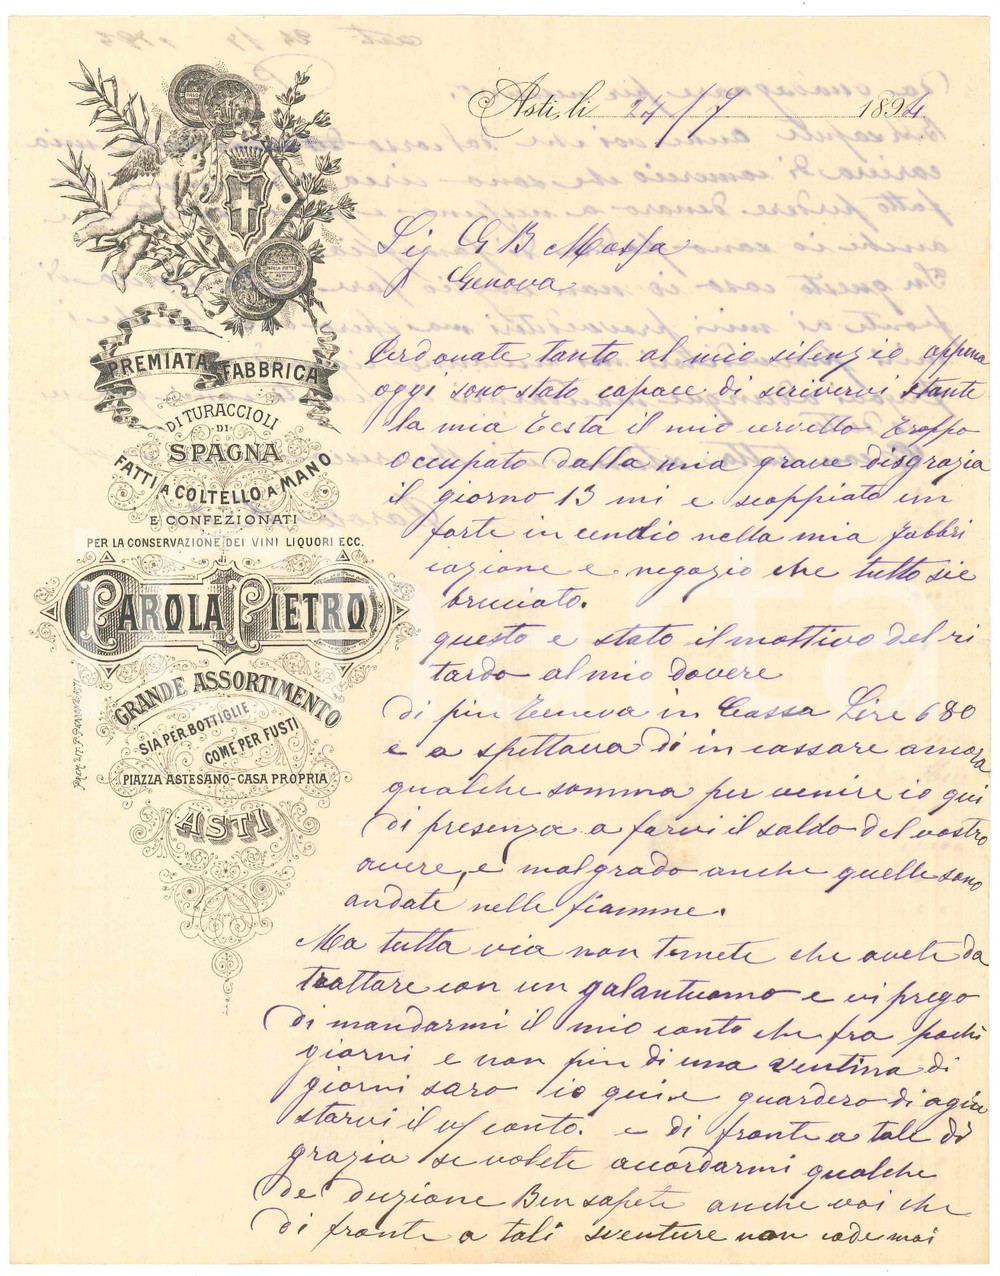 Asti, li 24/7 1894
PREMIATA FABBRICA
DI TURACCIOLI
DI
SPAGNA
FATTI A COLTELLO A MANO
E CONFEZIONATI
PER LA CONSERVAZIONE DEI VINI LIQUORI ECC.
PAROLA PIETRO
GRANDE ASSORTIMENTO
SIA PER BOTTIGLIE
COME PER FUSTI
PIAZZA ASTESANO-CASA PROPRIA
ASTI
Sig G B Mossa
Genova
Perdonate tanto al mio silenzio appena
oggi sono stato capace di scrivervi stante
la mia testa il mio cervello troppo
occupato dalla mia grave disgrazia
il giorno 13 mi e scoppiato un
forte in cendio nella mia fabbri
cazione e negozio che tutto si e
bruciato.
questo e stato il mottivo del ri
tardo al mio dovere
di piu teneva in Cassa Lire 680
e a spettava di in cassare ancora
qualche somma per venire io qui
di presenza a farvi il saldo del vostro
avere, e malgrado anche quelle sono
andate nelle fiamme.
Ma tutta via non temete che avete da
trattare con un galantuomo e vi prego
di mandarmi il mio conto che fra pochi
giorni e non piu di una ventina di
giorni saro io qui e guardero di agiu
starvi il v/ conto. e di fronte a tale di
grazia se volete accordarmi qualche
de duzione Ben sapete anche voi che
di fronte a tali sventure non cade mai